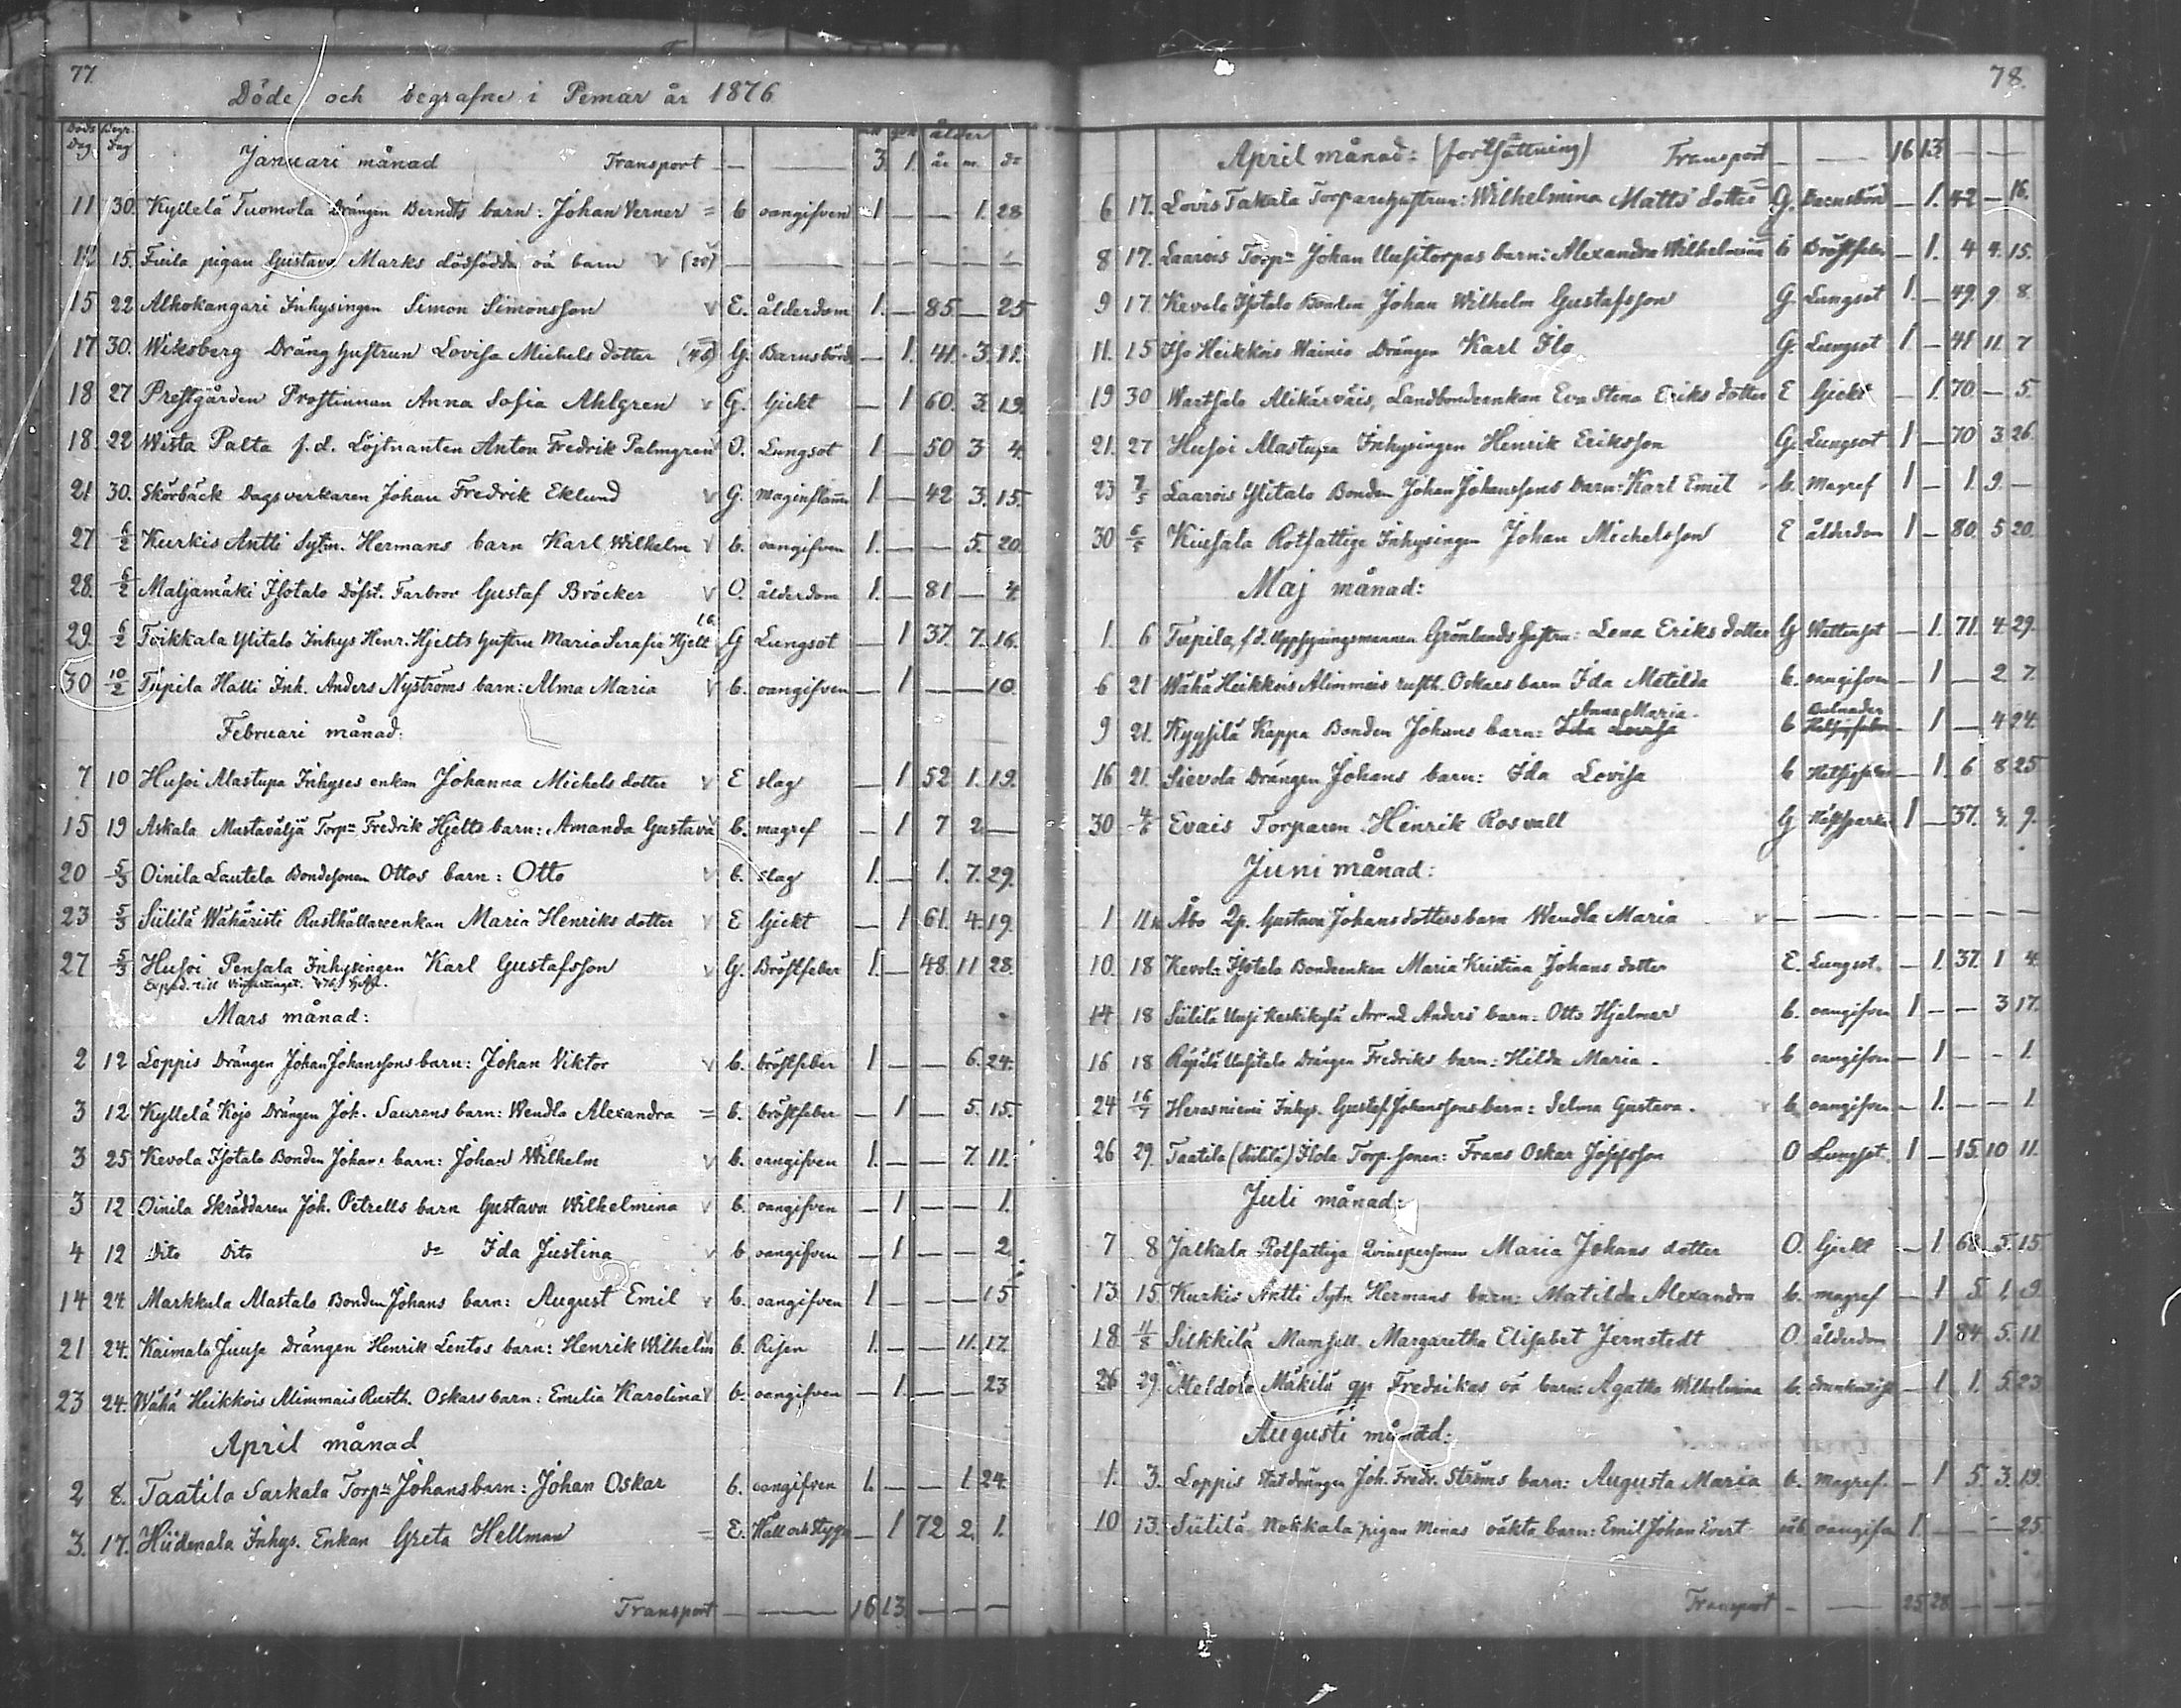 77.
Döde och begrafne i Pemar år 1876
Döds Dag Begr. Dag mk qk ålder
Januari månad Transport — — 3. 1. år m. dr
11 30. Kyllelä Tuomola Drängen Berndts barn: Johan Verner = b oangifven 1 — — 1. 28
15. pigan Gustava Marks dödfödda oä barn v — — — — — — —
15 22 Alhokangari Inhysingen Simon Simonsson v E. ålderdom 1. — 85. — 25
17 30. Wiksberg Dräng hustrun Lovisa Michels dotter G. Barnsbörd — 1. 41. 3. 11.
18 27 Prestgården Prostinnan Anna Sofia Ahlgren v G. Gickt — 1 60. 3. 19.
18. 22 Wista Palta f.d. Löjtnanten Anton Fredrik Palmgren v O. Lungsot 1. — 50 3 4.
21 30. Skörbäck Dagsverkaren Johan Fredrik Eklund v G. 1. — 42 3. 15.
27 6/2 Kurkis Antti Sytn. Hermans barn Karl Wilhelm v b. oangifven 1. — — 5. 20.
28. 6/2 Maljamäki Isotalo Farbror Gustaf Bröcker v O. ålderdom 1. — 81 — 4.
29. 6/2 Toikkala Ylitalo Inhys Henr. Hjelts hustru Maria Serafia Hjelt G Lungsot — 1 37. 7. 16.
30 10/2 Tupila Halli Inh. Anders Nyströms barn: Alma Maria v b. oangifven — 1 — — 10.
Februari månad:
7 10 Husoi Alastupa Inhyses enkan Johanna Michels dotter v E slag — 1 52 1. 19.
15 19 Askala Mastaväljä Torpn Fredrik Hjelts barn: Amanda Gustava v b. magref — 1 7 2 —
20 5/3 Oinila Lautela Bondesonen Ottos barn: Otto v b. slag 1. — 1. 7. 29.
23 5/3 Siililä Wähäristi Rusthållareenkan Maria Henriks dotter v E Gickt — 1 61. 4. 19.
27 5/3 Husoi Pensala Inhysingen Karl Gustafsson v G. Bröstfeber 1. — 48. 11 28.
Mars månad:
2 12 Loppis Drängen Johan Johanssons barn: Johan Viktor v b. bröstfeber 1 — — 6. 24.
3 12 Kyllelä Kojo Drängen Joh. Saurens barn: Wendla Alexandra = b. bröstfeber — 1 — 5. 15.
3 25 Kevola Isotalo Bonden Johans barn: Johan Wilhelm v b. oangifven 1. — — 7. 11.
3 12. Oinila Skräddaren Joh. Petrells barn Gustava Wilhelmina v b. oangifven — 1 — — 1.
4 12 Dito Dito do Ida Justina v b oangifven — 1 — — 2.
14 24. Markkula Alastalo Bonden Johans barn: August Emil v b. oangifven 1. — — — 15
21 24. Kaimala Juusa Drängen Henrik Lentos barn: Henrik Wilhelm v b. Risen 1. — — 11. 17.
23 24. Wähä Heikkois Alimmais Rusth. Oskars barn: Emelia Karolina v b. oangifven — 1. — — 23
April månad
2 8. Taatila Sarkala Torpn Johans barn: Johan Oskar b. oangifven 1. — — 1. 24.
3. 17. Hiidenala Inhys. Enkan Greta Hellman = E. Håll och Stygn — 1 72 2. 1.
Transport — — 16 13. — — —
78.
April månad: (fortsättning) Transport — — 16 13. — —
6 17. Lovis Takala Torparehustrun: Wilhelmina Matts dotter G. Barnsbörd — 1. 42 — 16.
8 17. Laarois Torpn Johan Uusitorpas barn: Alexandra Wilhelmina b Bröstfeber — 1. 4 4. 15.
9 17. Kevola Isotalo Bonden Johan Wilhelm Gustafsson G. Lungsot 1. — 49. 9 8.
11. 15 Iso Heikkois Wainio Drängen Karl Ilo G. Lungsot 1 — 41 11. 7
19 30 Wartsala Alikärväis, Landbondeenkan Eva Stina Eriks dotter E Gickt — 1. 70. — 5.
21. 27 Husoi Alastupa Inhysingen Henrik Eriksson G. Lungsot 1 — 70 3. 26.
23 7/5 Laarois Ylitalo Bonden Johan Johanssons barn: Karl Emil b. Magref 1 — 1. 9. —
30 6/5 Kiusala Rotfattige Inhysingen Johan Michelsson E ålderdom 1 — 80. 5 20.
Maj månad:
1. 6 Tupila, f.d. Uppsyningsmannen Grönlunds hustru: Lena Eriks dotter G Wattensot — 1. 71. 4. 29.
6 21 Wähä Heikkois Alimmais rusth. Oskars barn Ida Matilda b. oangifven — 1 — 2 7.
Anna Maria.
9 21. Kyysilä Kappa Bonden Johans barn: Ida Lovisa b — 1 — 4 24.
16 21. Sievola Drängen Johans barn: Ida Lovisa b — 1. 6 8 25
30 4/6 Evais Torparen Henrik Rosvall G 1 — 37. 9.
Juni månad:
1 11 Åbo Qp. Gustava Johansdotters barn Wendla Maria v — — — — — — —
10. 18 Kevola Isotalo Bondeenkan Maria Kristina Johans dotter E. Lungsot. — 1. 37. 1 4.
14 18 Siililä Uusi Keskikylä Anders barn: Otto Hjalmar b. oangifven 1 — — 3 17.
16 18 Uusitalo Drängen Fredriks barn: Hilda Maria. b oangifven — 1 — - 1.
24 16/7 Herasniemi Inhys. Gustaf Johanssons barn: Selma Gustava. v b. oangifven — 1. — — 1.
26 29. Taatila (Siililä) Torp. sonen: Frans Oskar Josefsson O Lungsot. 1 — 15. 10 11.
Juli månad:
7 8 Jalkala Rotfattiga Qvinspersonen Maria Johans dotter O. Gickt — 1 68. 5. 15
13. 15. Kurkis Antti Sytn Hermans barn: Matilda Alexandra b. magref — 1 5. 1. 9.
18 11/8 Silkkilä Mamsell Margaretha Elisabet Jernstedt O. ålderdom 1 84. 5. 11.
26 29. Meldola Mäkilä qp. Fredrikas oä barn: Agatha Wilhelmina b. — 1 1. 5. 23
Augusti månad:
1. 3. Loppis Statdrängen Joh. Fredr. Ströms barn: Augusta Maria b. magref. — 1 5. 3. 19.
10 13. Siililä Nokkala pigan Minas oäkta barn: Emil Johan Evert oäb oangifv 1. — — — 25.
Transport — — 25. 28. — — —